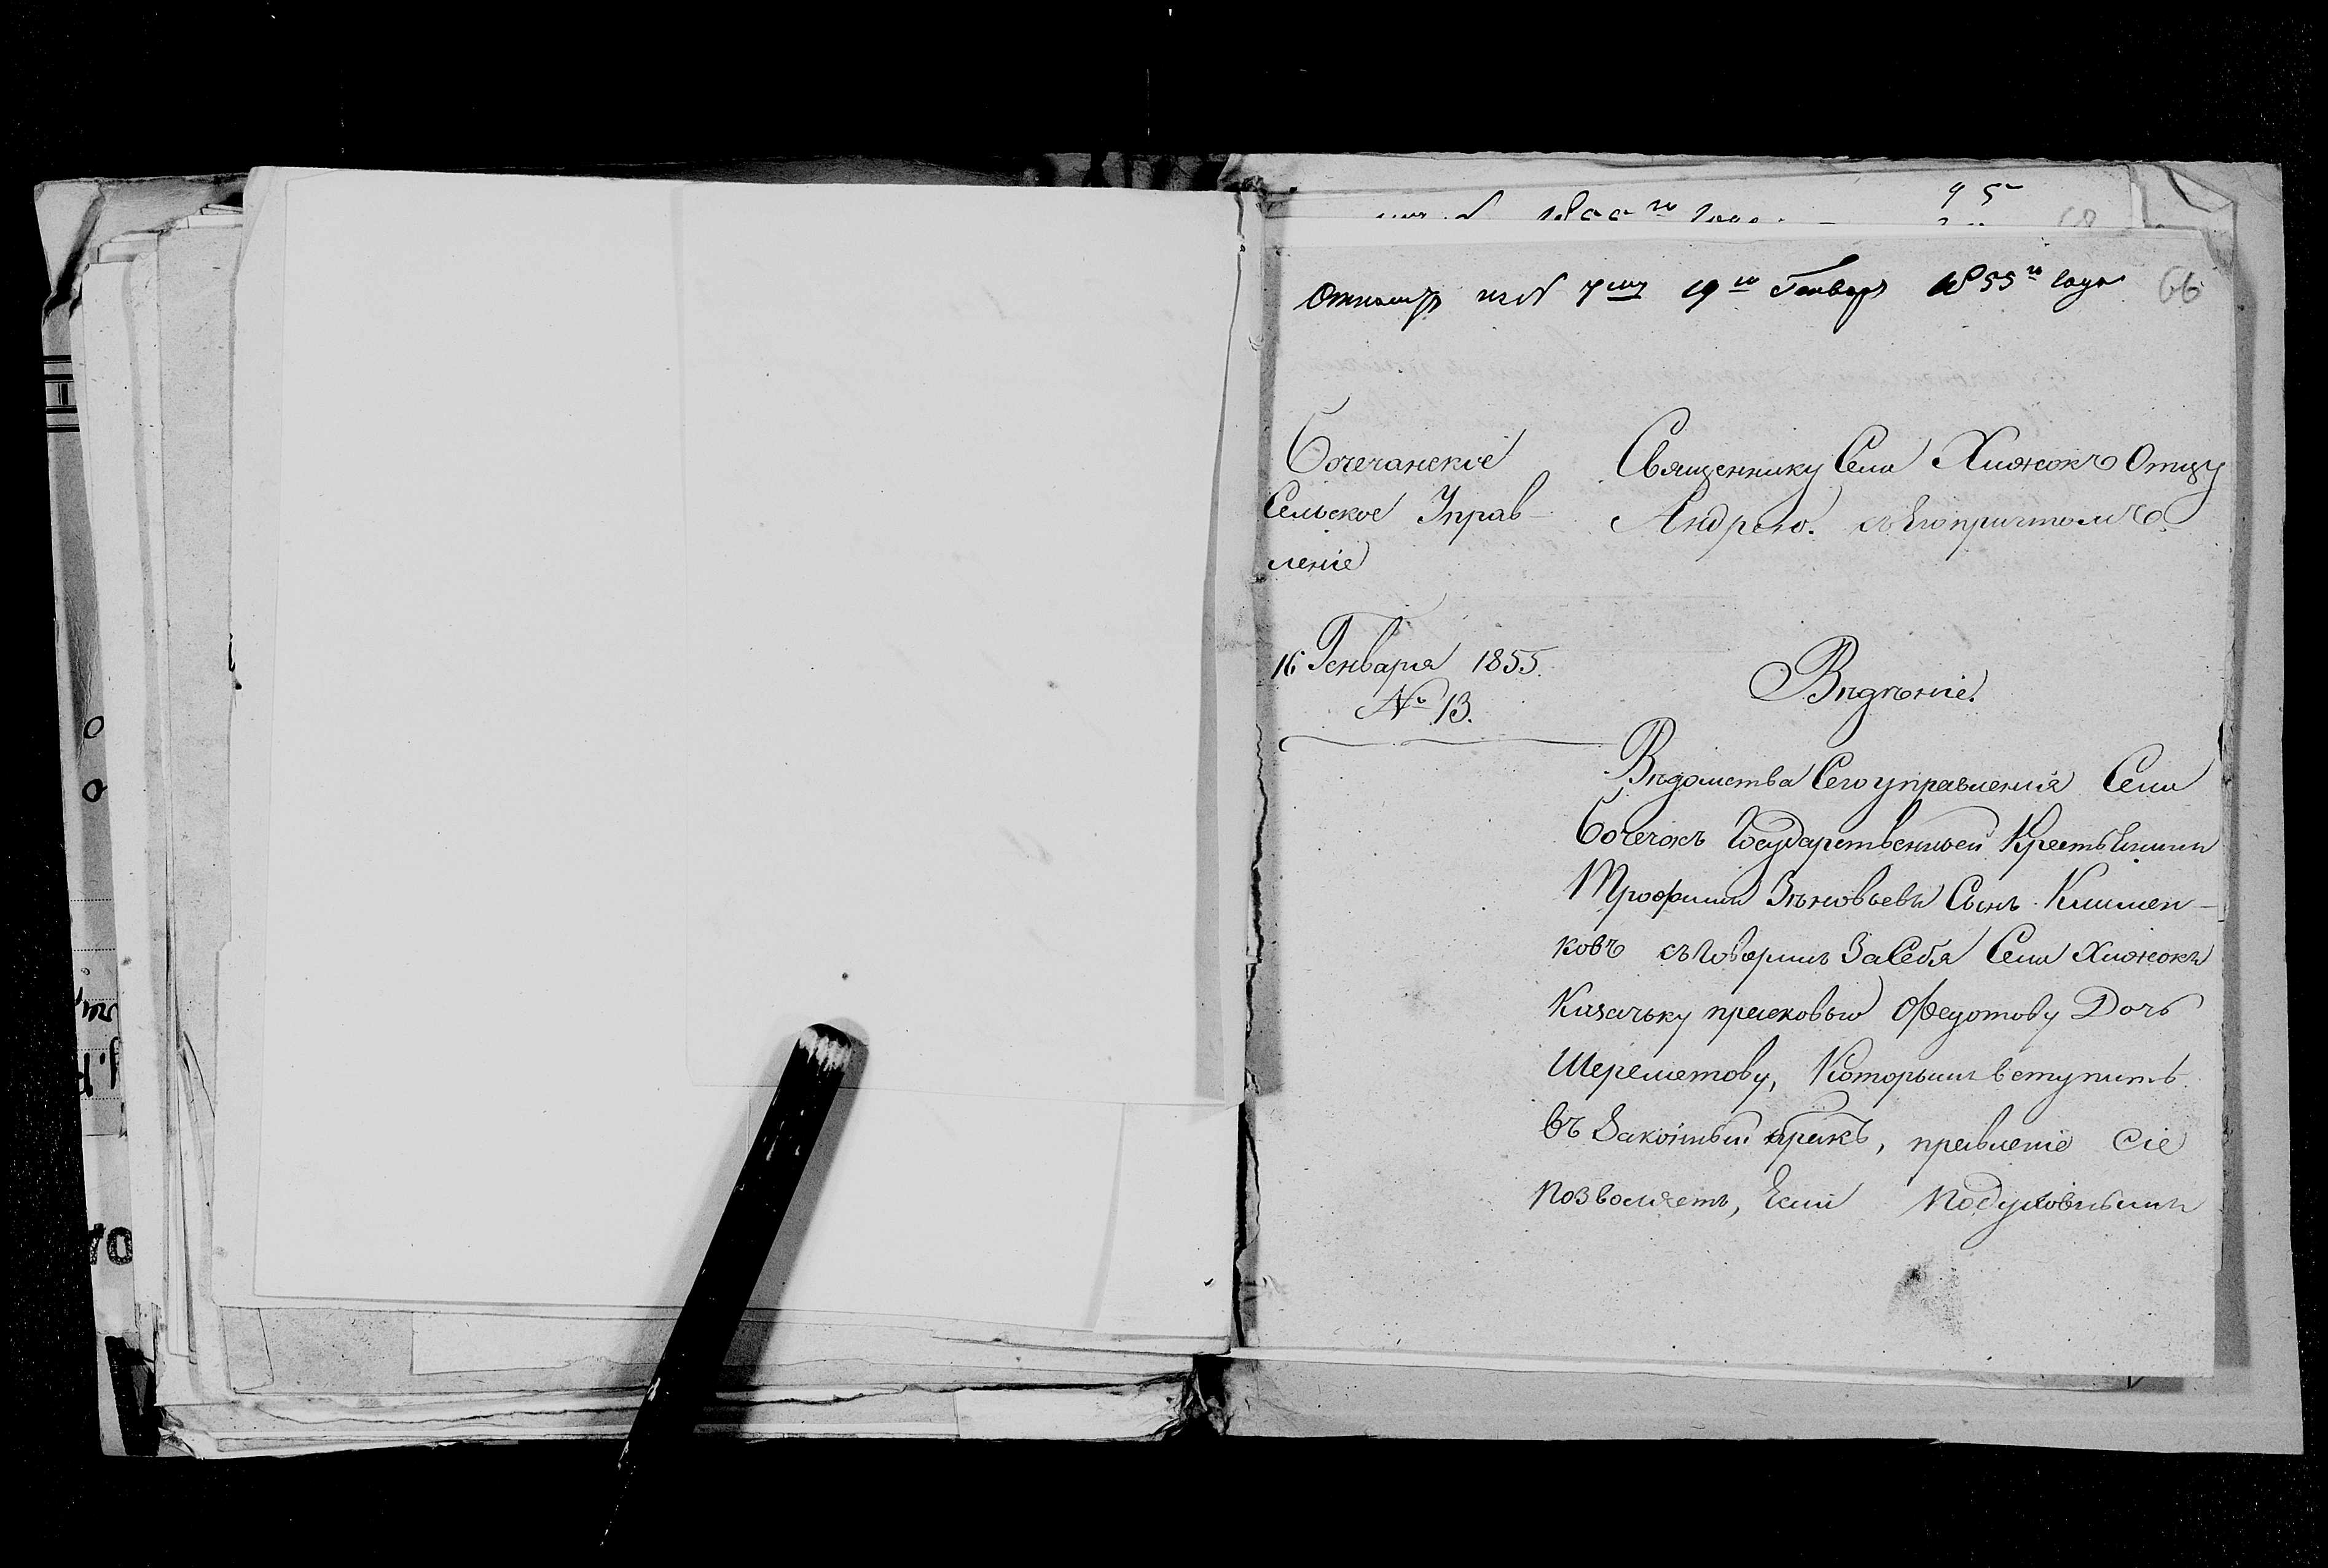 7му 19го Генваря 1855го года 66
Бочечанское
Сельское Управ-
ленiе
16 Генваря 1855.
№ 13.
Священнику Села Хижокъ Отцу
Андрею. съ Его причтомъ
Вѣденiе.
Вѣдомства Сего управленiя Села
Бочечокъ Государственной Крестьянинъ
Трофимъ Зѣновьевъ Сынъ Клímен-
ковъ съговорилъ За Себя Села Хижокъ
Казачьку прасковью Федотову Дочь
Шереметову, Которыи вступить
въ Законный бракъ, правленiе Сiе
Позволяетъ, Если Подуховнымъ